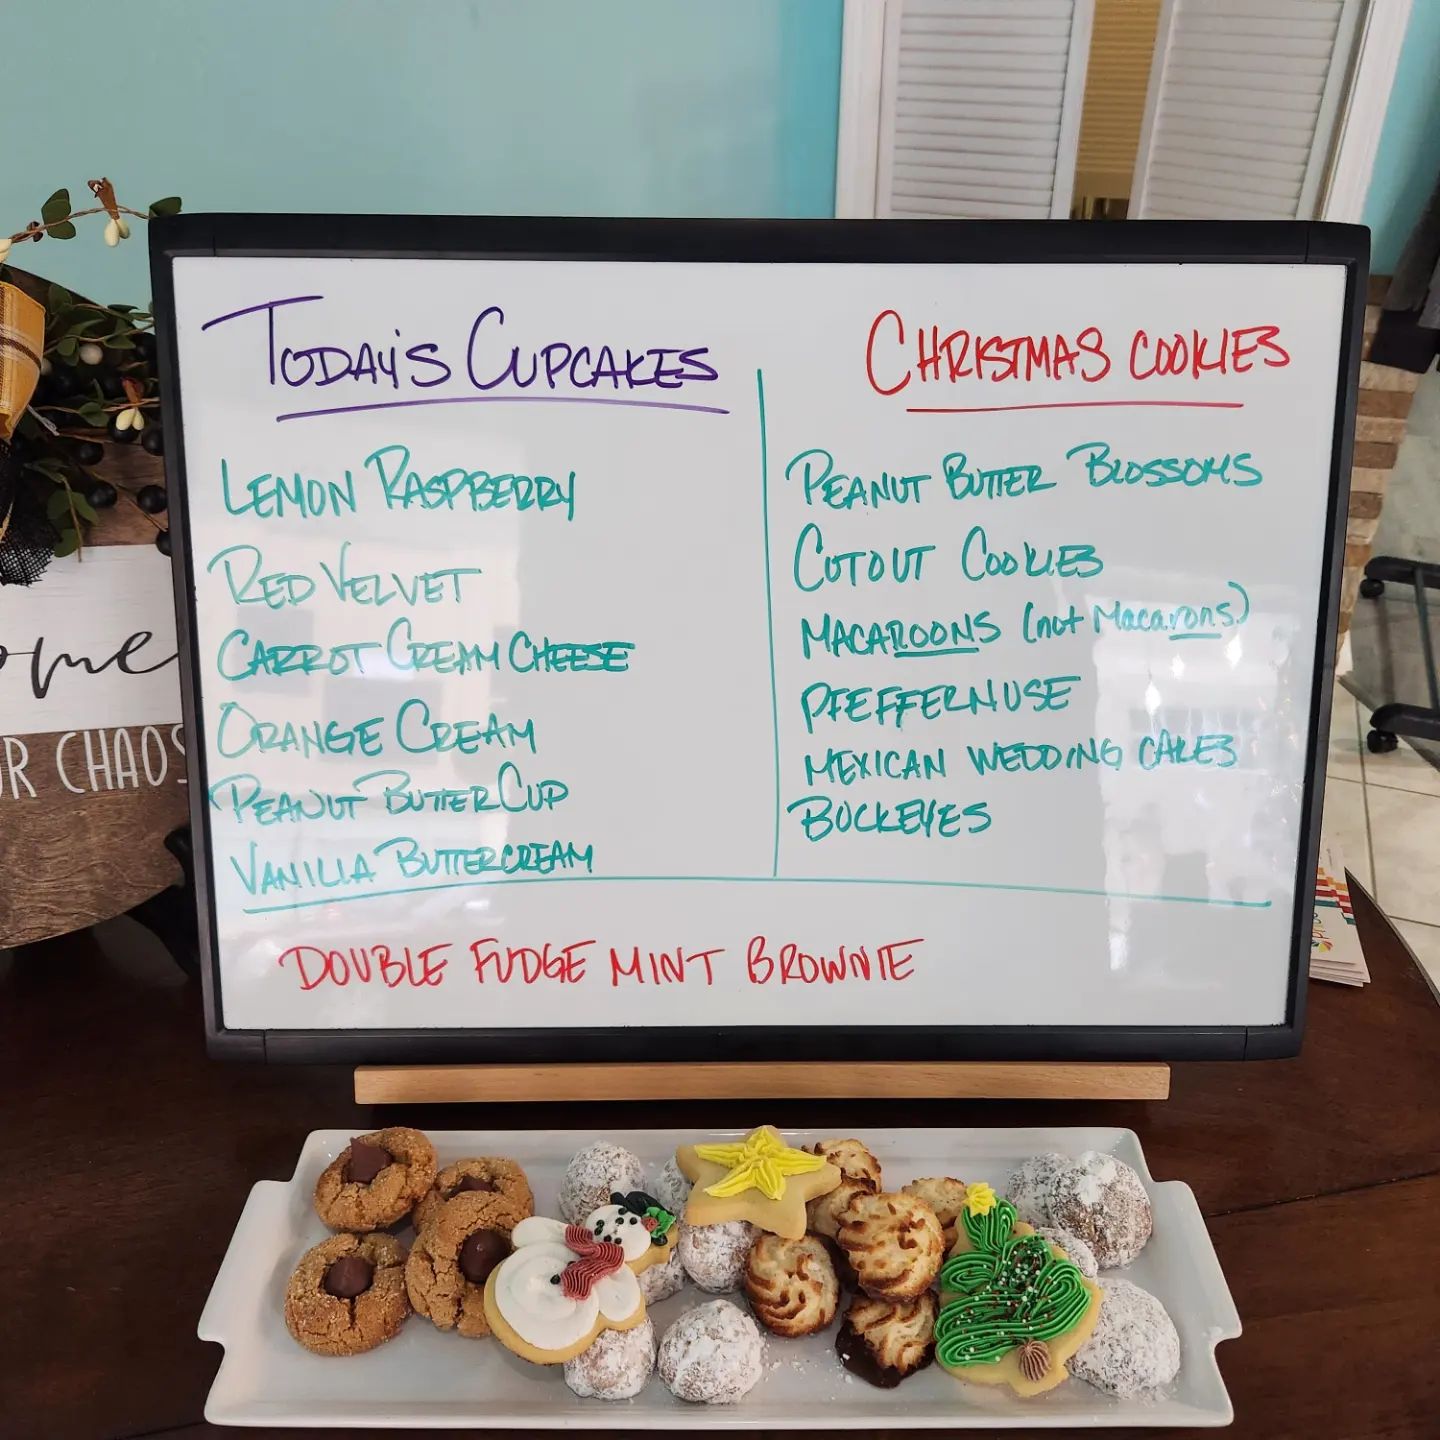 TODAY'S CUPCAKES
LEMON RASPBERRY
RED VELVET
CARROT CREAM CHEESE
ORANGE CREAM
PEANUT BUTTER CUP
VANILLA BUTTERCREAM
CHRISTMAS COOKIES
PEANUT BUTTER BLOSSOMS
CUTOUT COOKIES
MACAROONS (not Macarons)
PFEFFERNUSE
MEXICAN WEDDING CAKES
BUCKEYES
DOUBLE FUDGE MINT BROWNIE
ome
R CHAOS